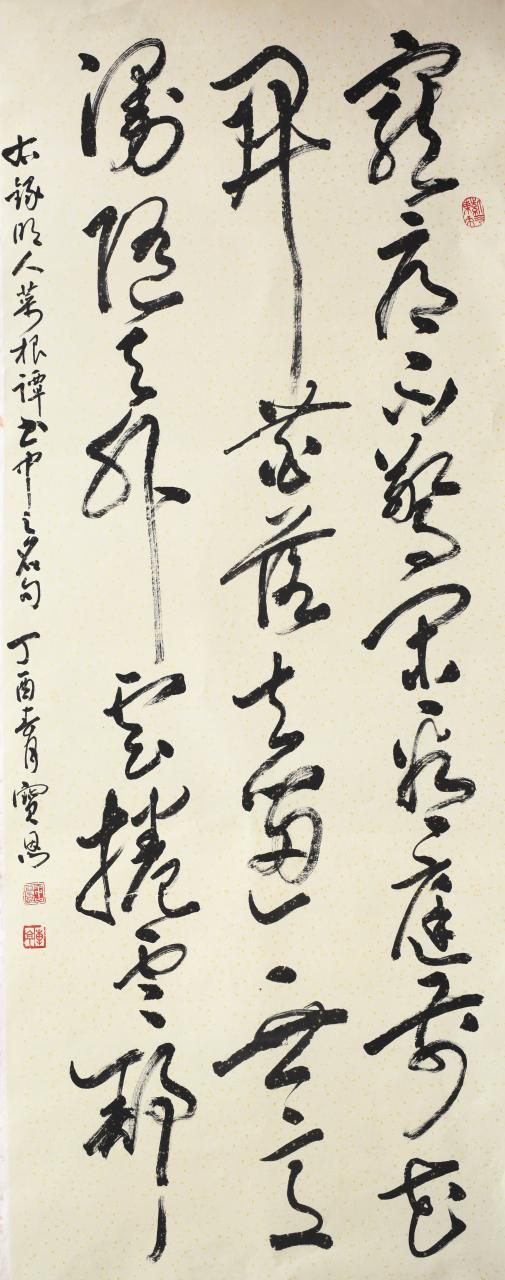 寵辱不驚閑看庭前花
開花落去留無意
漫隨天外雲捲雲舒
右錄明人菜根譚書中之名句 丁酉春月 寶恩